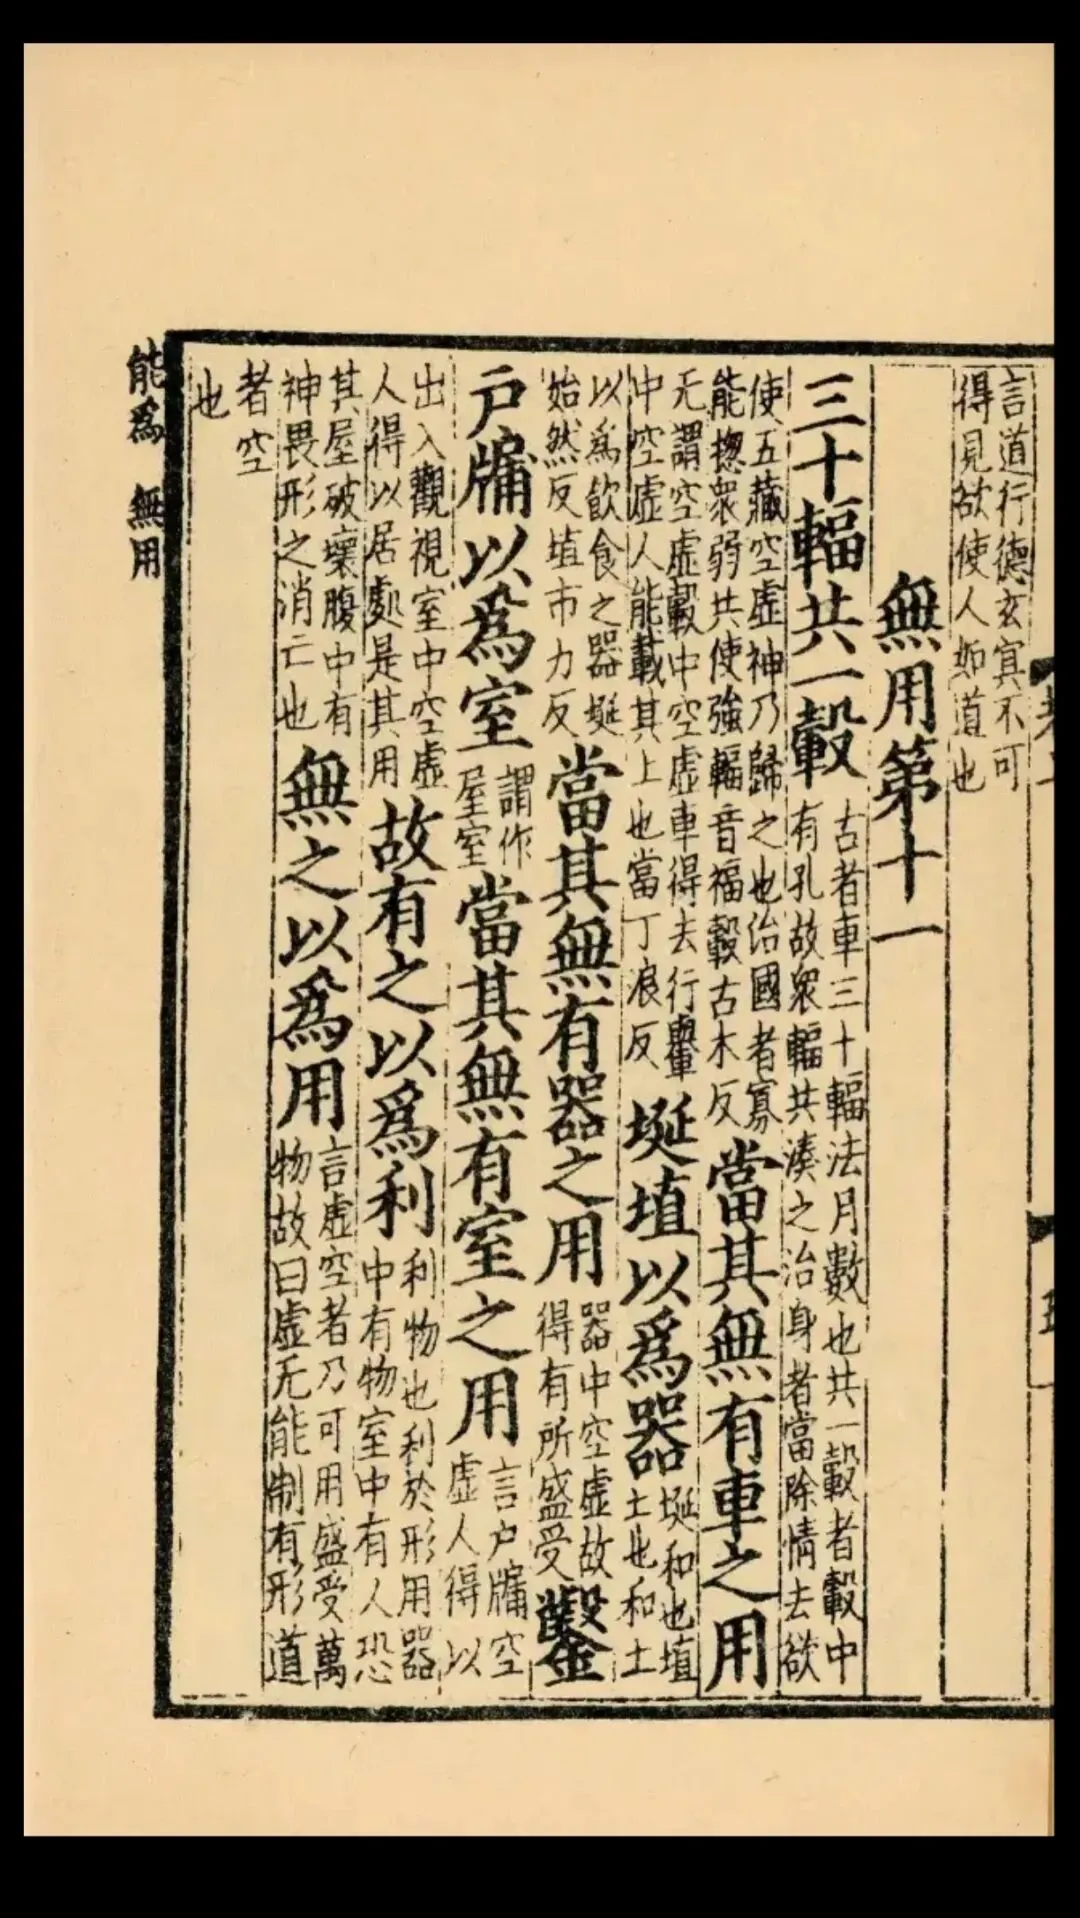 言道行德玄冥不可
得見欲使人如道也
無用第十一
三十輻共一轂
古者車三十輻法月數也共一轂者轂中
有孔故衆輻共湊之治身者當除情去欲
使五藏空虛神乃歸之也治國者寡
能揔衆弱共使強輻音福轂古木反
當其無有車之用
无謂空虛轂中空虛車得去行轝
中空虛人能載其上也當丁浪反
埏埴以爲器
埏和也埴
土也和土
以爲飲食之器埏
始然反埴市力反
當其無有器之用
器中空虛故
得有所盛受
鑿
户牖以爲室
謂作
屋室
當其無有室之用
言户牖空
虛人得以
出入觀視室中空虛
人得以居處是其用
故有之以爲利
利物也利於形用器
中有物室中有人恐
其屋破壞腹中有
神畏形之消亡也
無之以爲用
言虛空者乃可用盛受萬
物故曰虛无能制有形道
者空
也
能爲 無用